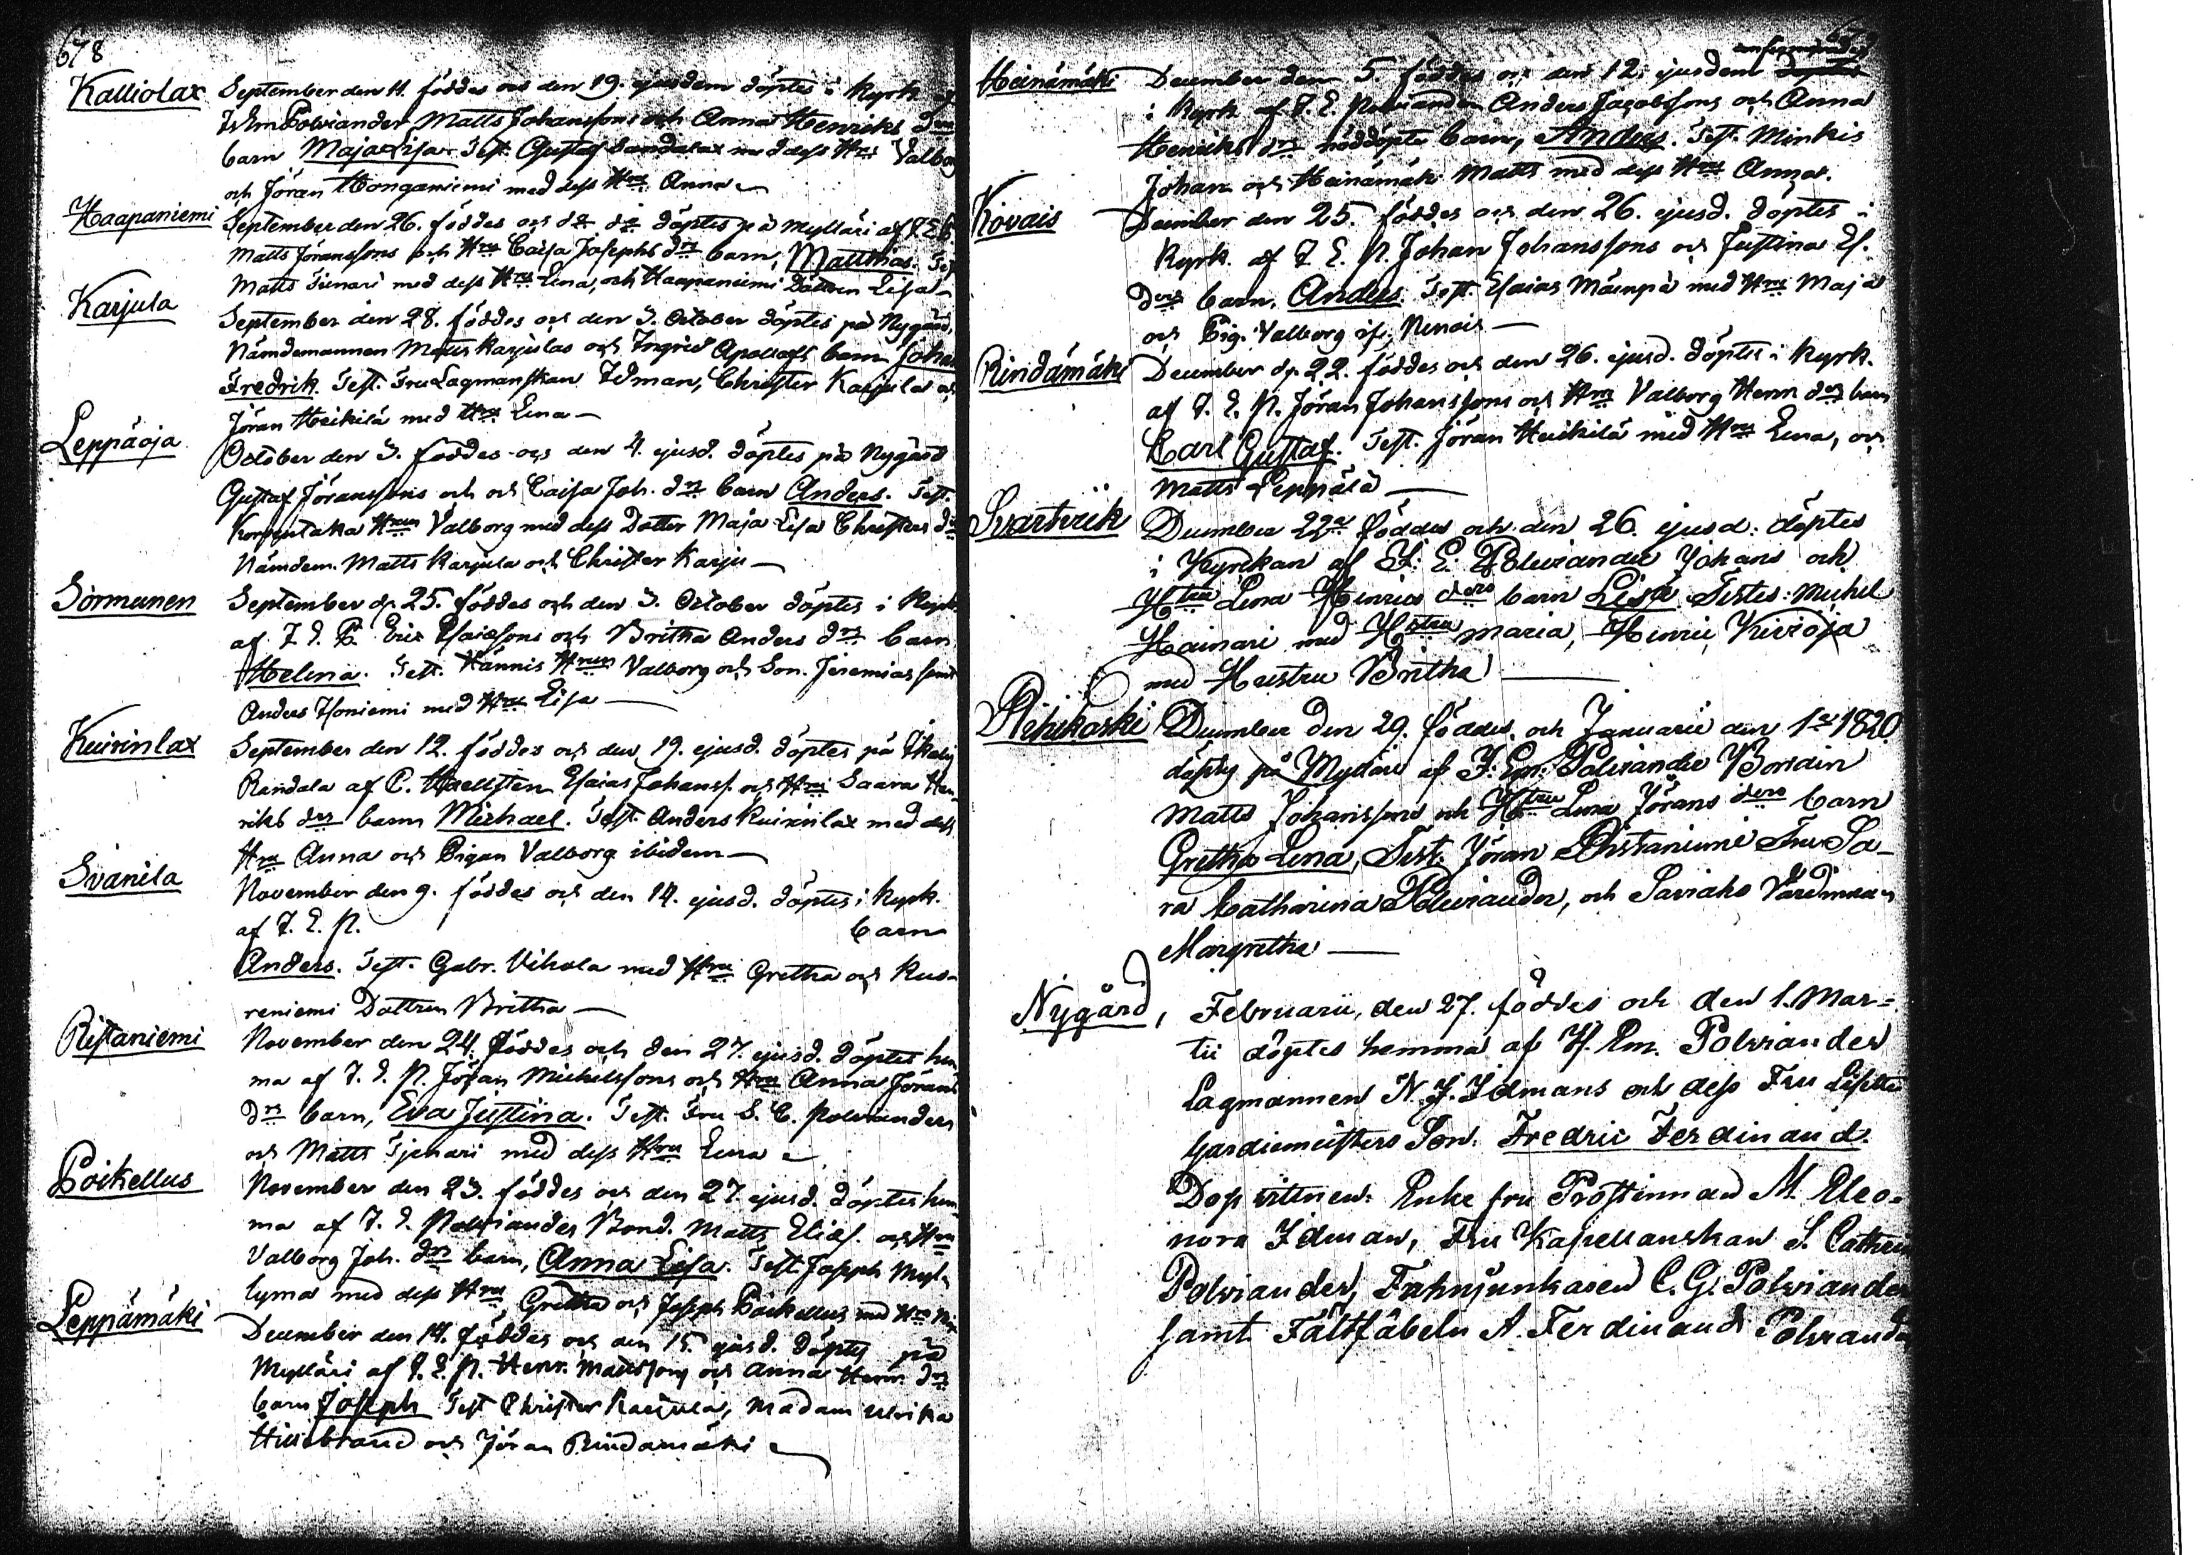 678
Kalliolax September den 11. föddes och den 19. ejusdem döptes i Kyrk. af
Polviander Matts Johanssons och Anna Henriks drs
barn Maja Lisa. Test. Gustaf med dess Hru Valborg
och Jöran Honganiemi med dess Hru Anna
Haapaniemi September den 26. föddes och do do döptes på Mylläri af J E P.
Matts Jöranssons och Hru Caisa Josephs drs barn, Matthias. Test.
Matts med dess Hru Lena, och Haapaniemi Dottren Lisa
Karjula September den 28. föddes och den 3. October döptes på Nygård,
Nämdemannen Matts Karjulas och Ingrid barn Johan
Fredrik. Test. Fru Lagmanskan Idman, Christer Karjula och
Jöran Heikilä med Hru Lena
Leppäoja October den 3. föddes och den 4. ejusd. döptes på Nygård
Gustaf Jöranssons och och Caisa Joh. drs barn Anders. Test.
Hrun Valborg med dess Dotter Maja Lisa Christers dr
Nämdem. Matts Karjula och Christer Karju
Sormunen September d. 25. föddes och den 3. October döptes i Kyrk.
af J. E. P. Eric Esaiæsons och Britha Anders drs barn
Helena. Test. Hännis Hrun Valborg och Son. Jeremias samt
Anders Isoniemi med Hru Lisa
Kuirinlax September den 12. föddes och den 19. ejusd. döptes på
Randala af C. Haellsten Esaias Johanss. och Hru Saara Hen-
riks drs barn Michael. Test. Anders Kuirinlax med dess
Hru Anna och Pigan Valborg ibidem
Svänila November den 9. föddes och den 14. ejusd. döptes i Kyrk.
af J. E. P. barn
Anders. Test. Gabr. Vihola med Hru Gretha och Kus-
reniemi Dottren Britha
Ristaniemi November den 24. föddes och den 27. ejusd. döptes hem-
ma af J. E. P. Jöran Michelssons och Hru Anna Jörans
drs barn, Eva Justina. Test. Fru S. C. Polviander
och Matts Tjenari med dess Hru Lena
Poikellus November den 23. föddes och den 27. ejusd. döptes hem-
ma af J. E. Polviander Bond. Matts Eliæs. och Hru
Valborg Joh. drs barn, Anna Lisa. Test. Joseph Myl-
lymä med dess Hru Gretha och Joseph Poikellus med Hru
Leppämäki December den 14. föddes och den 15. ejusd. döptes på
Mylläri af J. E. P. Henr. Mattssons och Anna Henr. drs
barn Joseph Test. Christer Karjula, Madam Ulrika
Hillebrand och Jöran Rindamäki
679
Heinämäki December den 5. föddes och den 12. ejusdem döptes
i Kyrk. af J. E. Polviander Anders Jacobssons och Anna
Henriks drs nöddöpta barn, Anders. Test. Minkis
Johan och Heinämäki Matts med dess Hru Anna.
Kovais December den 25. föddes och den 26. ejusd. döptes i
Kyrk. af J. E. P. Johan Johanssons och Justina Es.
drs barn, Anders. Test. Esaias Mäenpä med Hru Maja
och Pig. Valborg
Rindämäki December d. 22. föddes och den 26. ejusd. döptes i Kyrk.
af J. E. P. Jöran Johanssons och Hru Valborg Henr. drs barn
Carl Gustaf. Test. Jöran Heikilä med Hru Lena, och
Matts Leppälä
Svartvik December 22a föddes och den 26. ejusd. döptes
i Kyrckan af J. E. Polviander Johans och
Hstru Lena Henrics ders barn Lisa Testes: Michel
Hainari med Hstru Maria, Henric Kivioja
med Hustru Britha
Pehikoski December den 29. föddes, och Januarii den 1ta 1820
döptes på Mylläri af J: Em: Polviander Bondn
Matts Johanssons och Hstru Lena Jörans ders barn
Gretha Lena, Test. Jöran Ristaniemi Fru Sa-
ra Catharina Polviander, och Saviaho Värdinnan
Margretha
Nygård, Februarii, den 27. föddes och den 1. Mar-
tii döptes hemma af H. Em. Polviander
Lagmannen N. J. Idmans och dess Fru Lisette
Gardiemeisters Son. Fredric Ferdinand.
Dop vittnen: Enke fru Prostinnan M. Eleo-
nora Idman, Fru Kapellanskan S. Cathrin
Polviander, Fahnjunkaren C. G. Polviander
samt Fältfäbeln A. Ferdinand Polviander